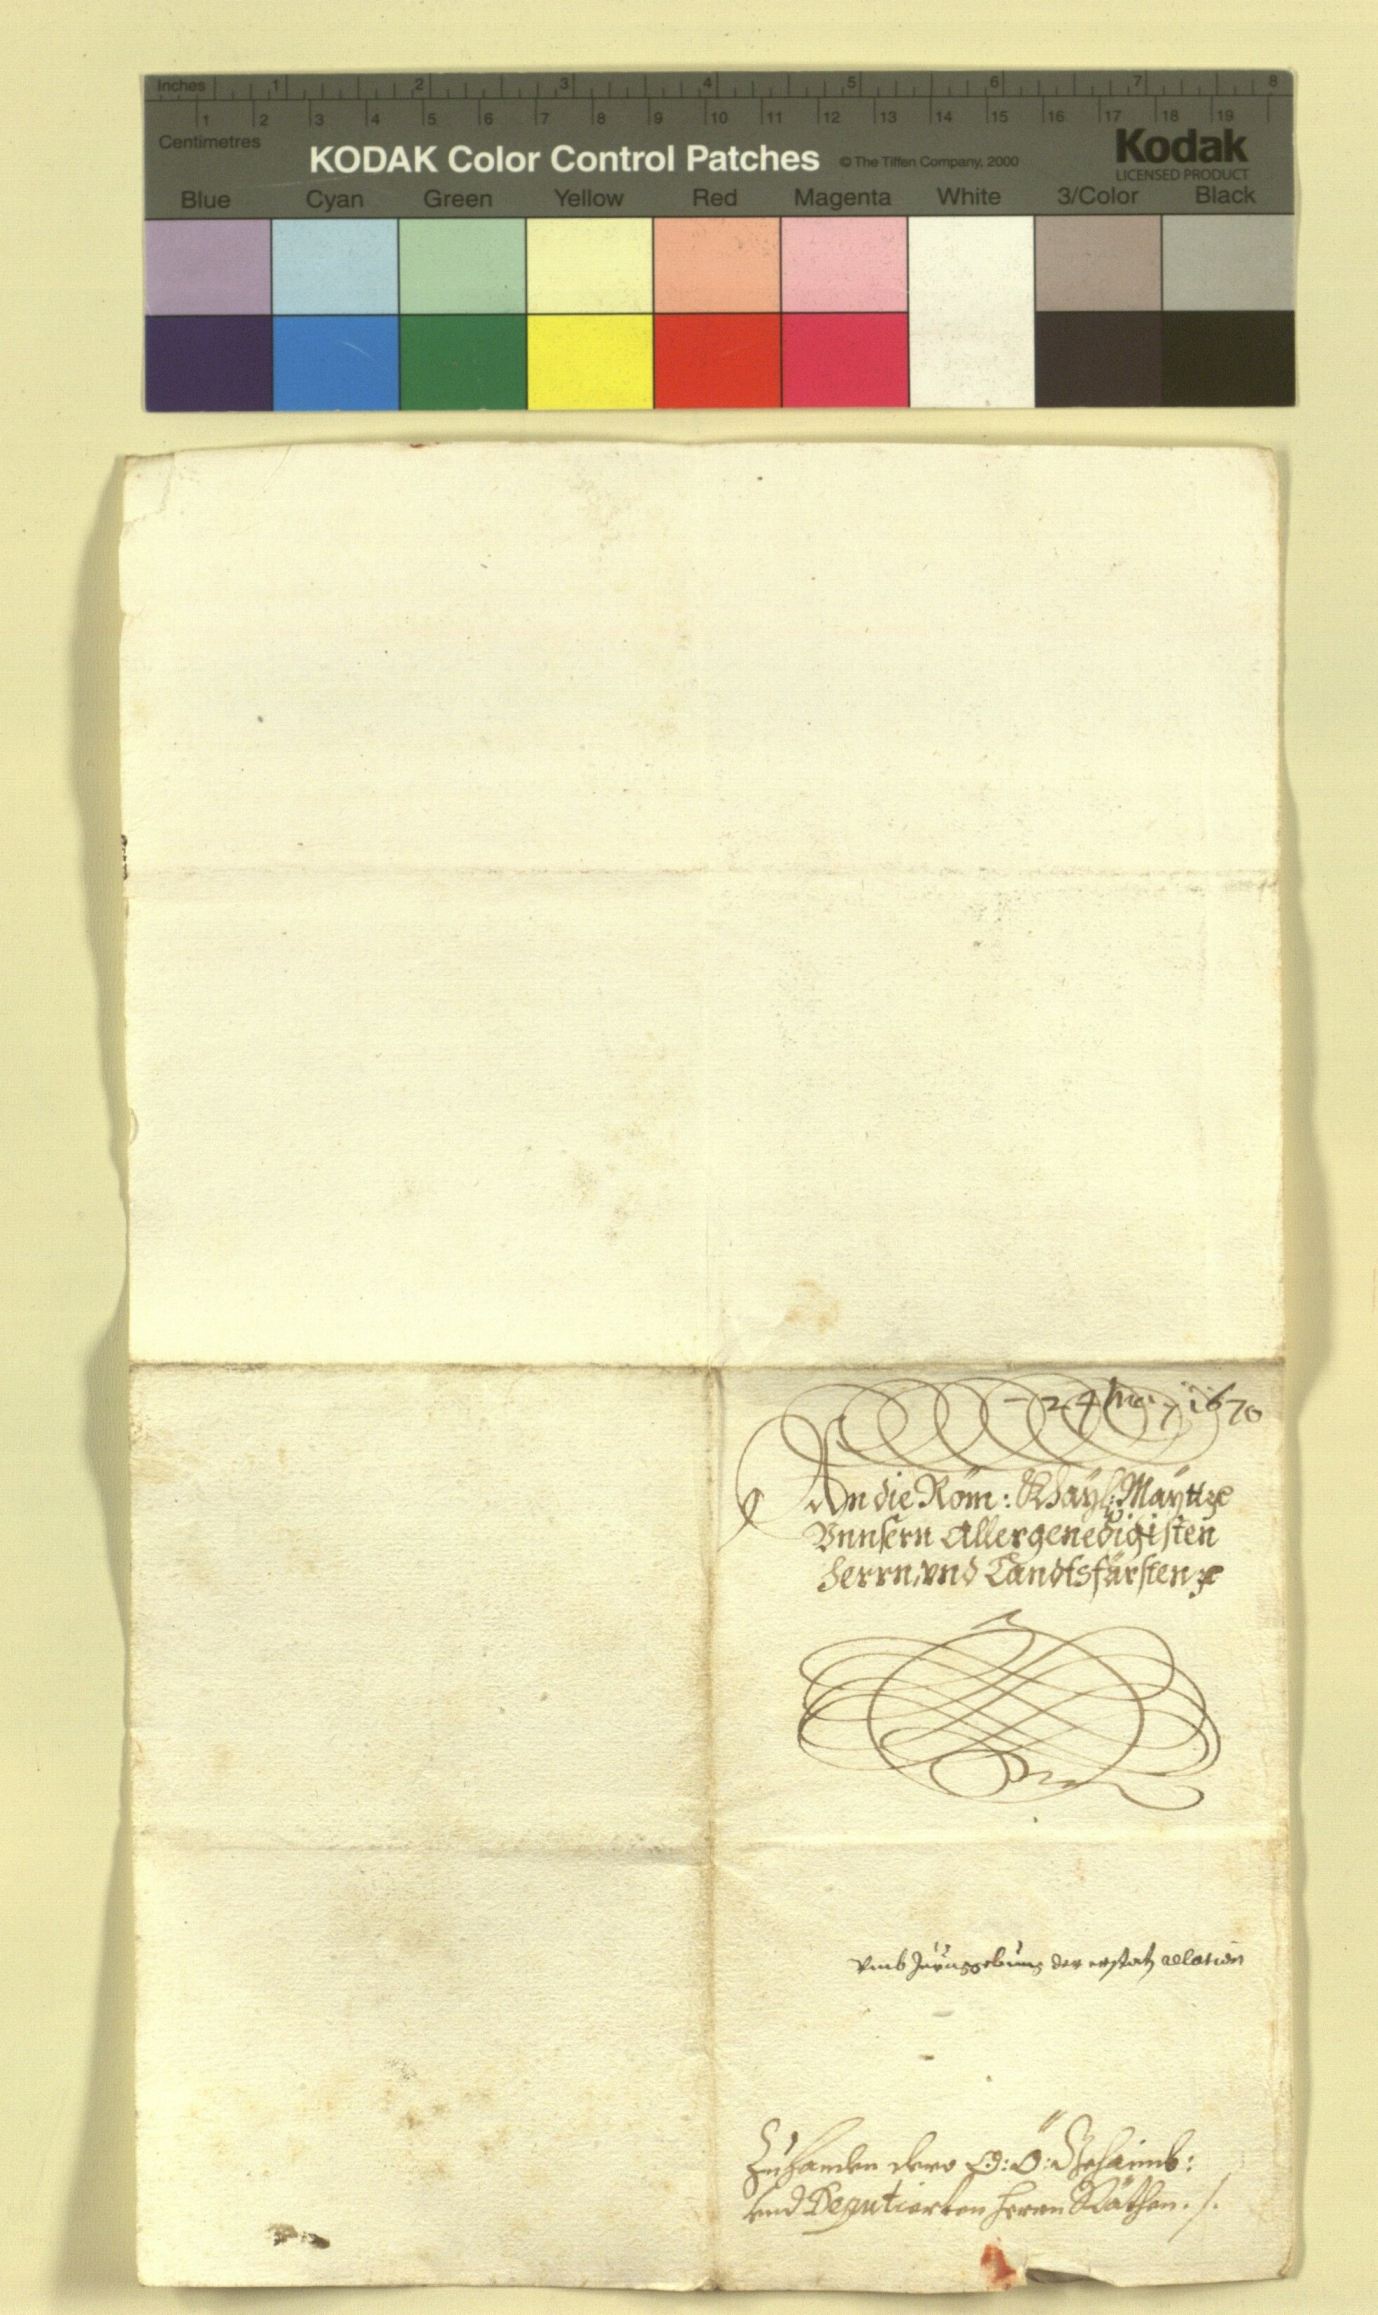 Inches 1 2 3 4 5 6 7 8
1 2 3 4 5 6 7 8 9 10 11 12 13 14 15 16 17 18 19
Centimetres
KODAK Color Control Patches © The Tiffen Company, 2000 Kodak
LICENSED PRODUCT
Blue Cyan Green Yellow Red Magenta White 3/Color Black
24 May 1670
An die Röm: Khaÿl: Maÿtt
Vnnsern Allergenedigisten
Herrn, vnd Landtsfürsten
vmb der relation
Zuhanden dero I: Ö: Gehaimb:
vnd Deputierten Herrn Räthen ./.